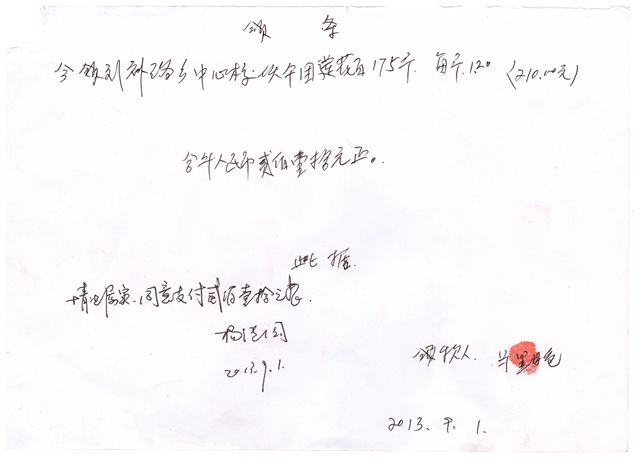 领 条
今领到 乡中心校 午团莲花白175斤. 每斤1.20 (210.00元)
合计人民币贰佰壹拾元正。
此据
情况属实.同意支付贰佰壹拾元.
2013.9.1.
领款人.
2013. 9. 1.